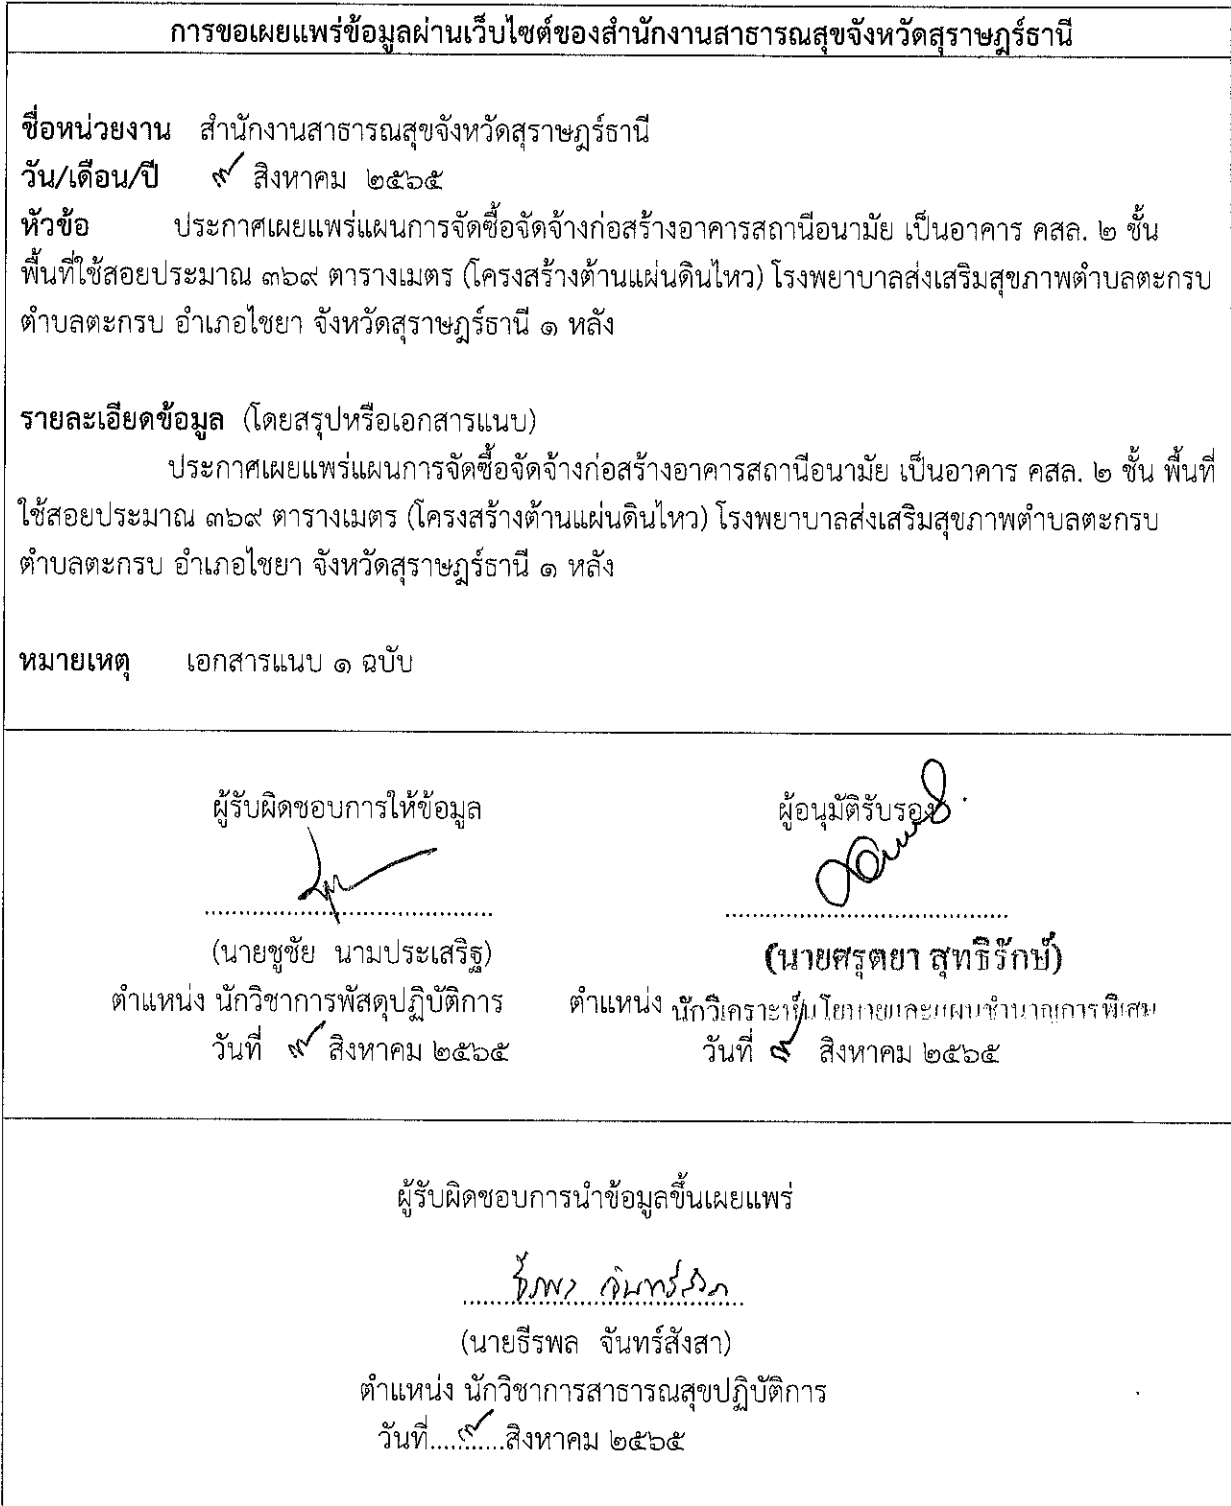 การขอเผยแพร่ข้อมูลผ่านเว็บไซต์ของสำนักงานสาธารณสุขจังหวัดสุราษฎร์ธานี
ชื่อหน่วยงาน สำนักงานสาธารณสุขจังหวัดสุราษฎร์ธานี
วัน/เดือน/ปี ๙ สิงหาคม ๒๕๖๕
หัวข้อ ประกาศเผยแพร่แผนการจัดซื้อจัดจ้างก่อสร้างอาคารสถานีอนามัย เป็นอาคาร คสล. ๒ ชั้น
พื้นที่ใช้สอยประมาณ ๓๖๙ ตารางเมตร (โครงสร้างต้านแผ่นดินไหว) โรงพยาบาลส่งเสริมสุขภาพตำบลตะกรบ
ตำบลตะกรบ อำเภอไชยา จังหวัดสุราษฎร์ธานี ๑ หลัง
รายละเอียดข้อมูล (โดยสรุปหรือเอกสารแนบ)
ประกาศเผยแพร่แผนการจัดซื้อจัดจ้างก่อสร้างอาคารสถานีอนามัย เป็นอาคาร คสล. ๒ ชั้น พื้นที่
ใช้สอยประมาณ ๓๖๙ ตารางเมตร (โครงสร้างต้านแผ่นดินไหว) โรงพยาบาลส่งเสริมสุขภาพตำบลตะกรบ
ตำบลตะกรบ อำเภอไชยา จังหวัดสุราษฎร์ธานี ๑ หลัง
หมายเหตุ เอกสารแนบ ๑ ฉบับ
ผู้รับผิดชอบการให้ข้อมูล ผู้อนุมัติรับรอง
(นายชูชัย นามประเสริฐ) (นายศรุตยา สุทธิรักษ์)
ตำแหน่ง นักวิชาการพัสดุปฏิบัติการ ตำแหน่ง นักวิเคราะห์นโยบายและแผนชำนาญการพิเศษ
วันที่ ๙ สิงหาคม ๒๕๖๕ วันที่ ๙ สิงหาคม ๒๕๖๕
ผู้รับผิดชอบการนำข้อมูลขึ้นเผยแพร่
(นายธีรพล จันทร์สังสา)
ตำแหน่ง นักวิชาการสาธารณสุขปฏิบัติการ
วันที่....๙....สิงหาคม ๒๕๖๕